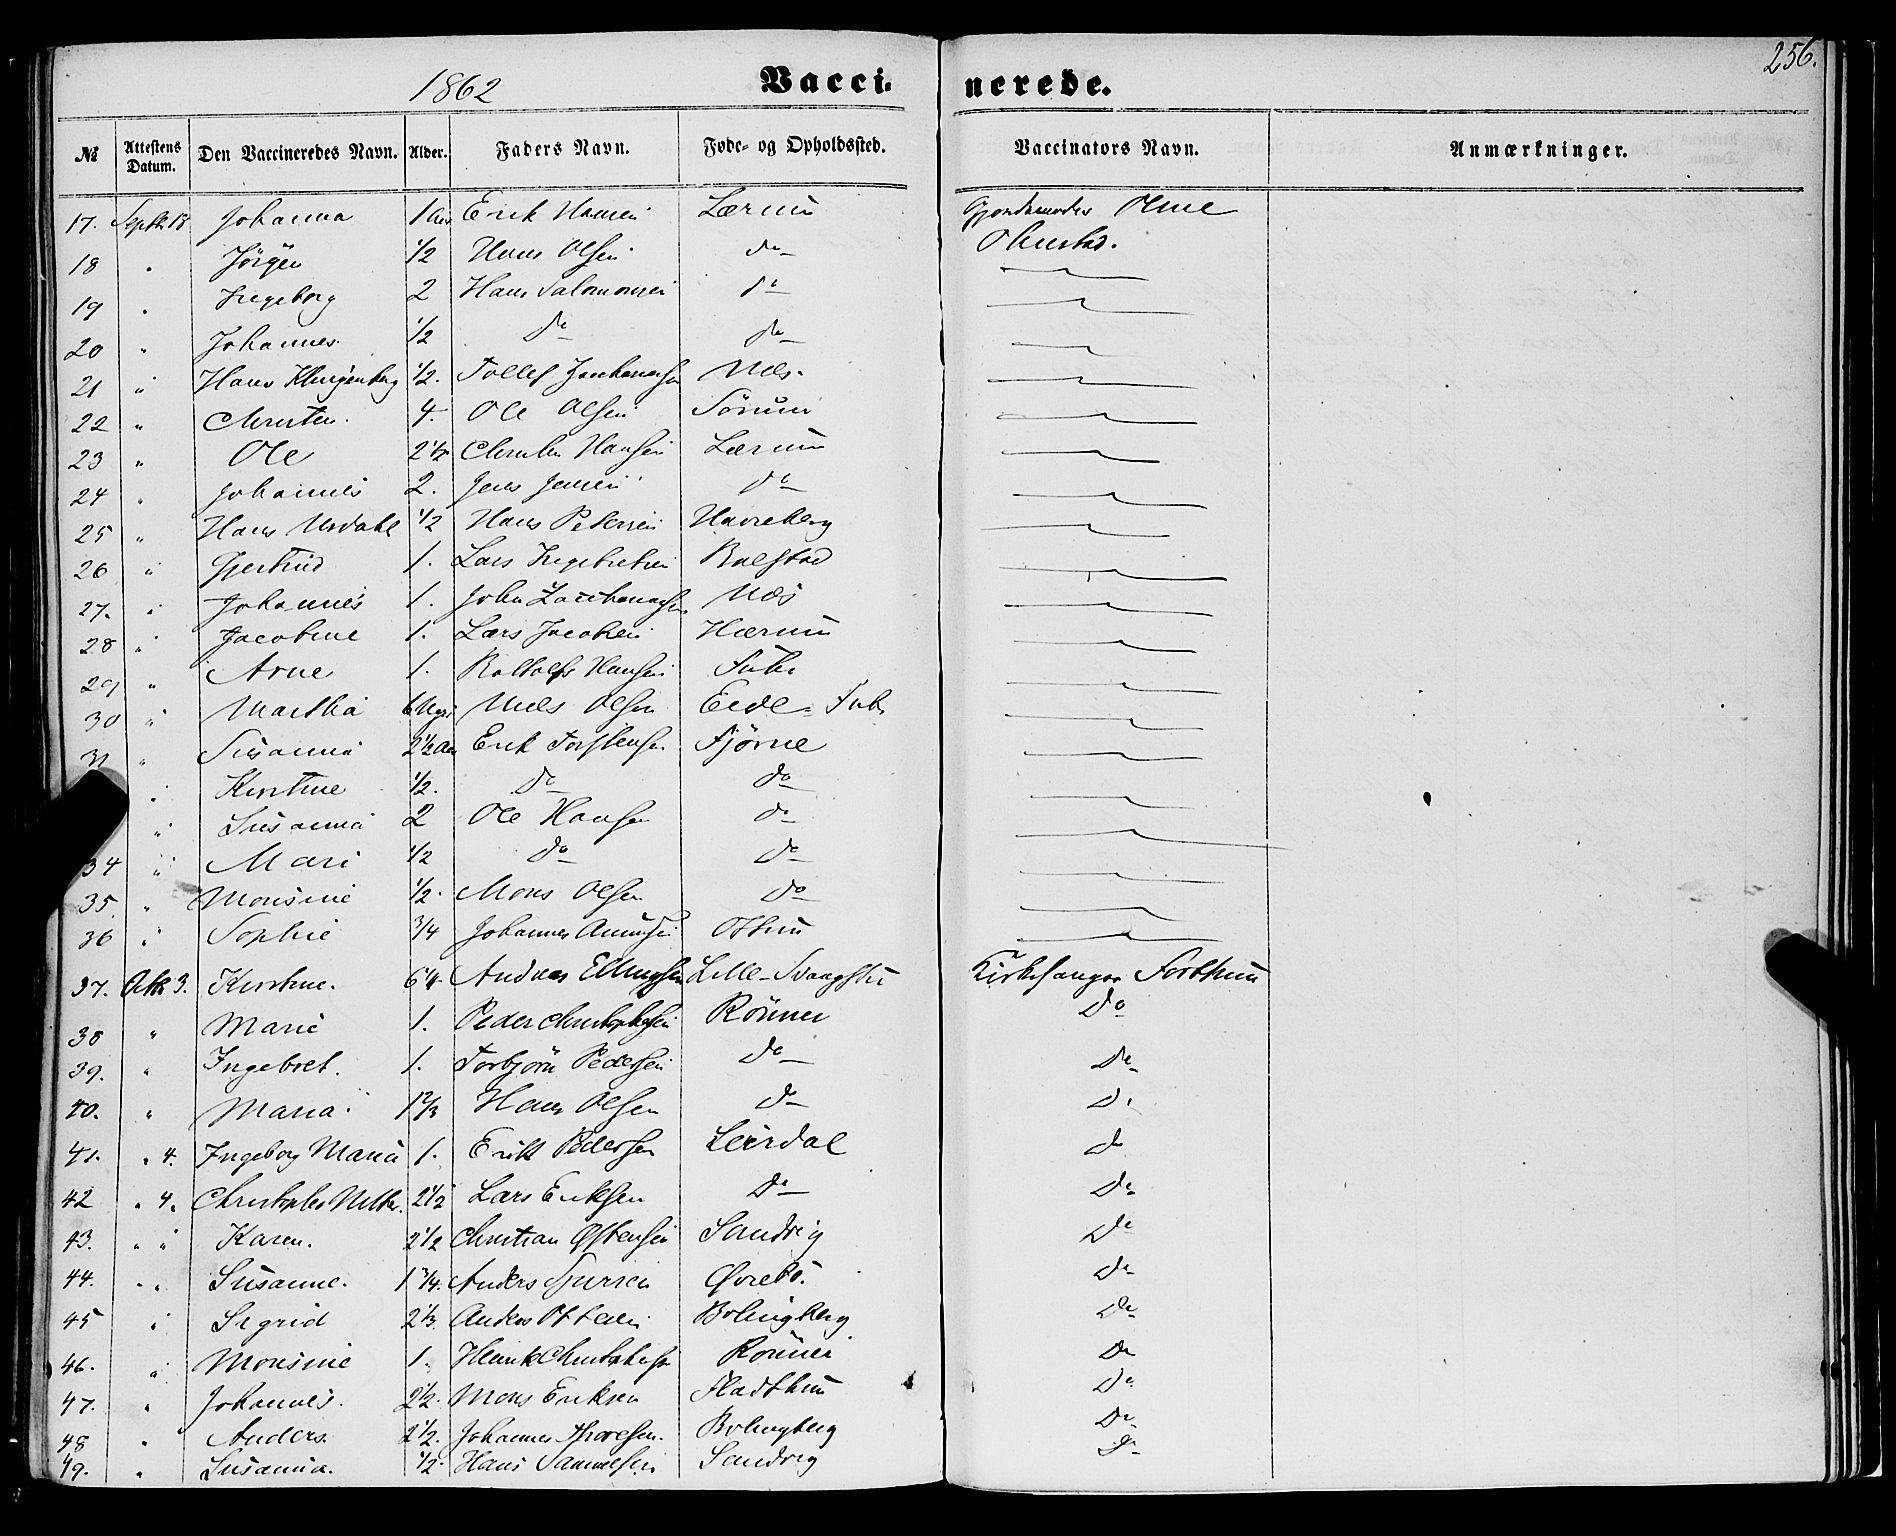 256.
1862 Vaccinerede.
№ Attestens Datum. Den Vaccineredes Navn. Alder. Faders Navn. Føde- og Opholdssted. Vaccinators Navn. Anmærkninger.
17. Septbr 18 Johanna 1 Aar Erik Hansen Lærum Ohme
18 " Jörgen 1/2 Hans Olsen do Ohnstad.
19 " Ingeborg 2 Hans Salomonsen do
20 " Johannes 1/2 do do
21 " Hans Klingenberg 1/2. Tollef Næs.
22 " Christen. 4. Ole Olsen Sörum
23 " Ole 2 1/2 Christen Hansen Lærum
24 " Johannes 2. Jens Jensen do
25 " Hans Urdahl 1/2 Hans Petersen Havreberg
26 " Gjertrud 1. Lars Ingebretsen Bolstad
27. " Johannes 1. John Zachariasen Næs
28 " Jacobine 1. Lars Jacobsen Hærum
29 " Arne 1. Hansen
30 " Martha 6 Niels Olsen Eide
31 " Susanna 2 1/2 Aar Erik Torstensen Fjörne
" Kirstine 1/2. do do
" Susanna 2 Ole Hansen do
34 " Mari 1/2 do do
35. " Monsine 1/2. Mons Olsen do
36 " Sophie 3/4 Johannes Ottum
37. Octbr 3. Kirstine. 6 1/4 Andreas Ellingsen Lille- Kirkesanger Forthun
38 " Marie 1. Peder Christophersen Rönnei Do
39. " Ingebret. 1. Torbjörn Pedersen Do Do
40. " Maria. 1 2/3 Hans Olsen Do Do
41. " 4. Ingeborg Maria 1. Erik Pedersen Leirdal do
42 " 4. Christopher 2 1/2 Lars Eriksen Do Do
43. " " Karen. 2 1/2 Christian Østensen Sandvig Do
44. " " Susanne. 1 3/4. Anders Sjursen Øvrebö. Do
45 " Sigrid 2 1/3. Anders Ottesen Bolingberg Do
46. " Monsine 1. Henrik Christophersen Rönnei Do
47. " Johannes. 2 1/2. Mons Eriksen Fladthun Do
48 " Anders. 2 1/2. Johannes Thoresen. Bolingberg Do
49. " Susanna. 1/2. Hans Samuelsen Sandvig Do